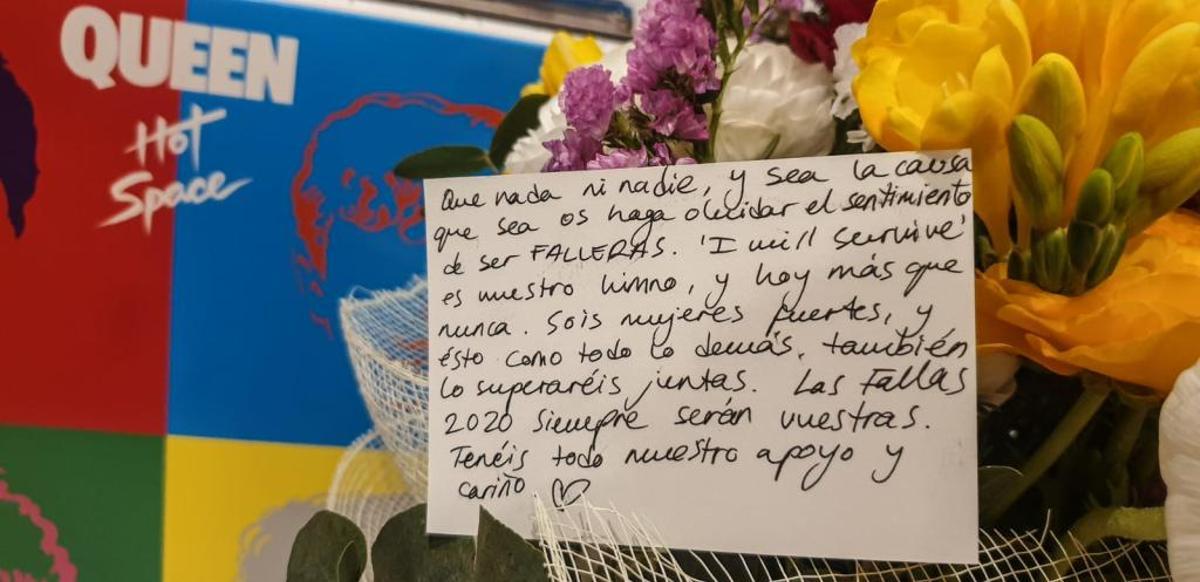 QUEEN
Hot
Space
Que nada ni nadie, y sea la causa
que sea os haga olvidar el sentimiento
de ser FALLERAS. 'I will survive'
es nuestro himno, y hoy más que
nunca. Sois mujeres fuertes, y
ésto como todo lo demás, también
lo superaréis juntas. Las Fallas
2020 siempre serán vuestras.
Tenéis todo nuestro apoyo y
cariño ♡